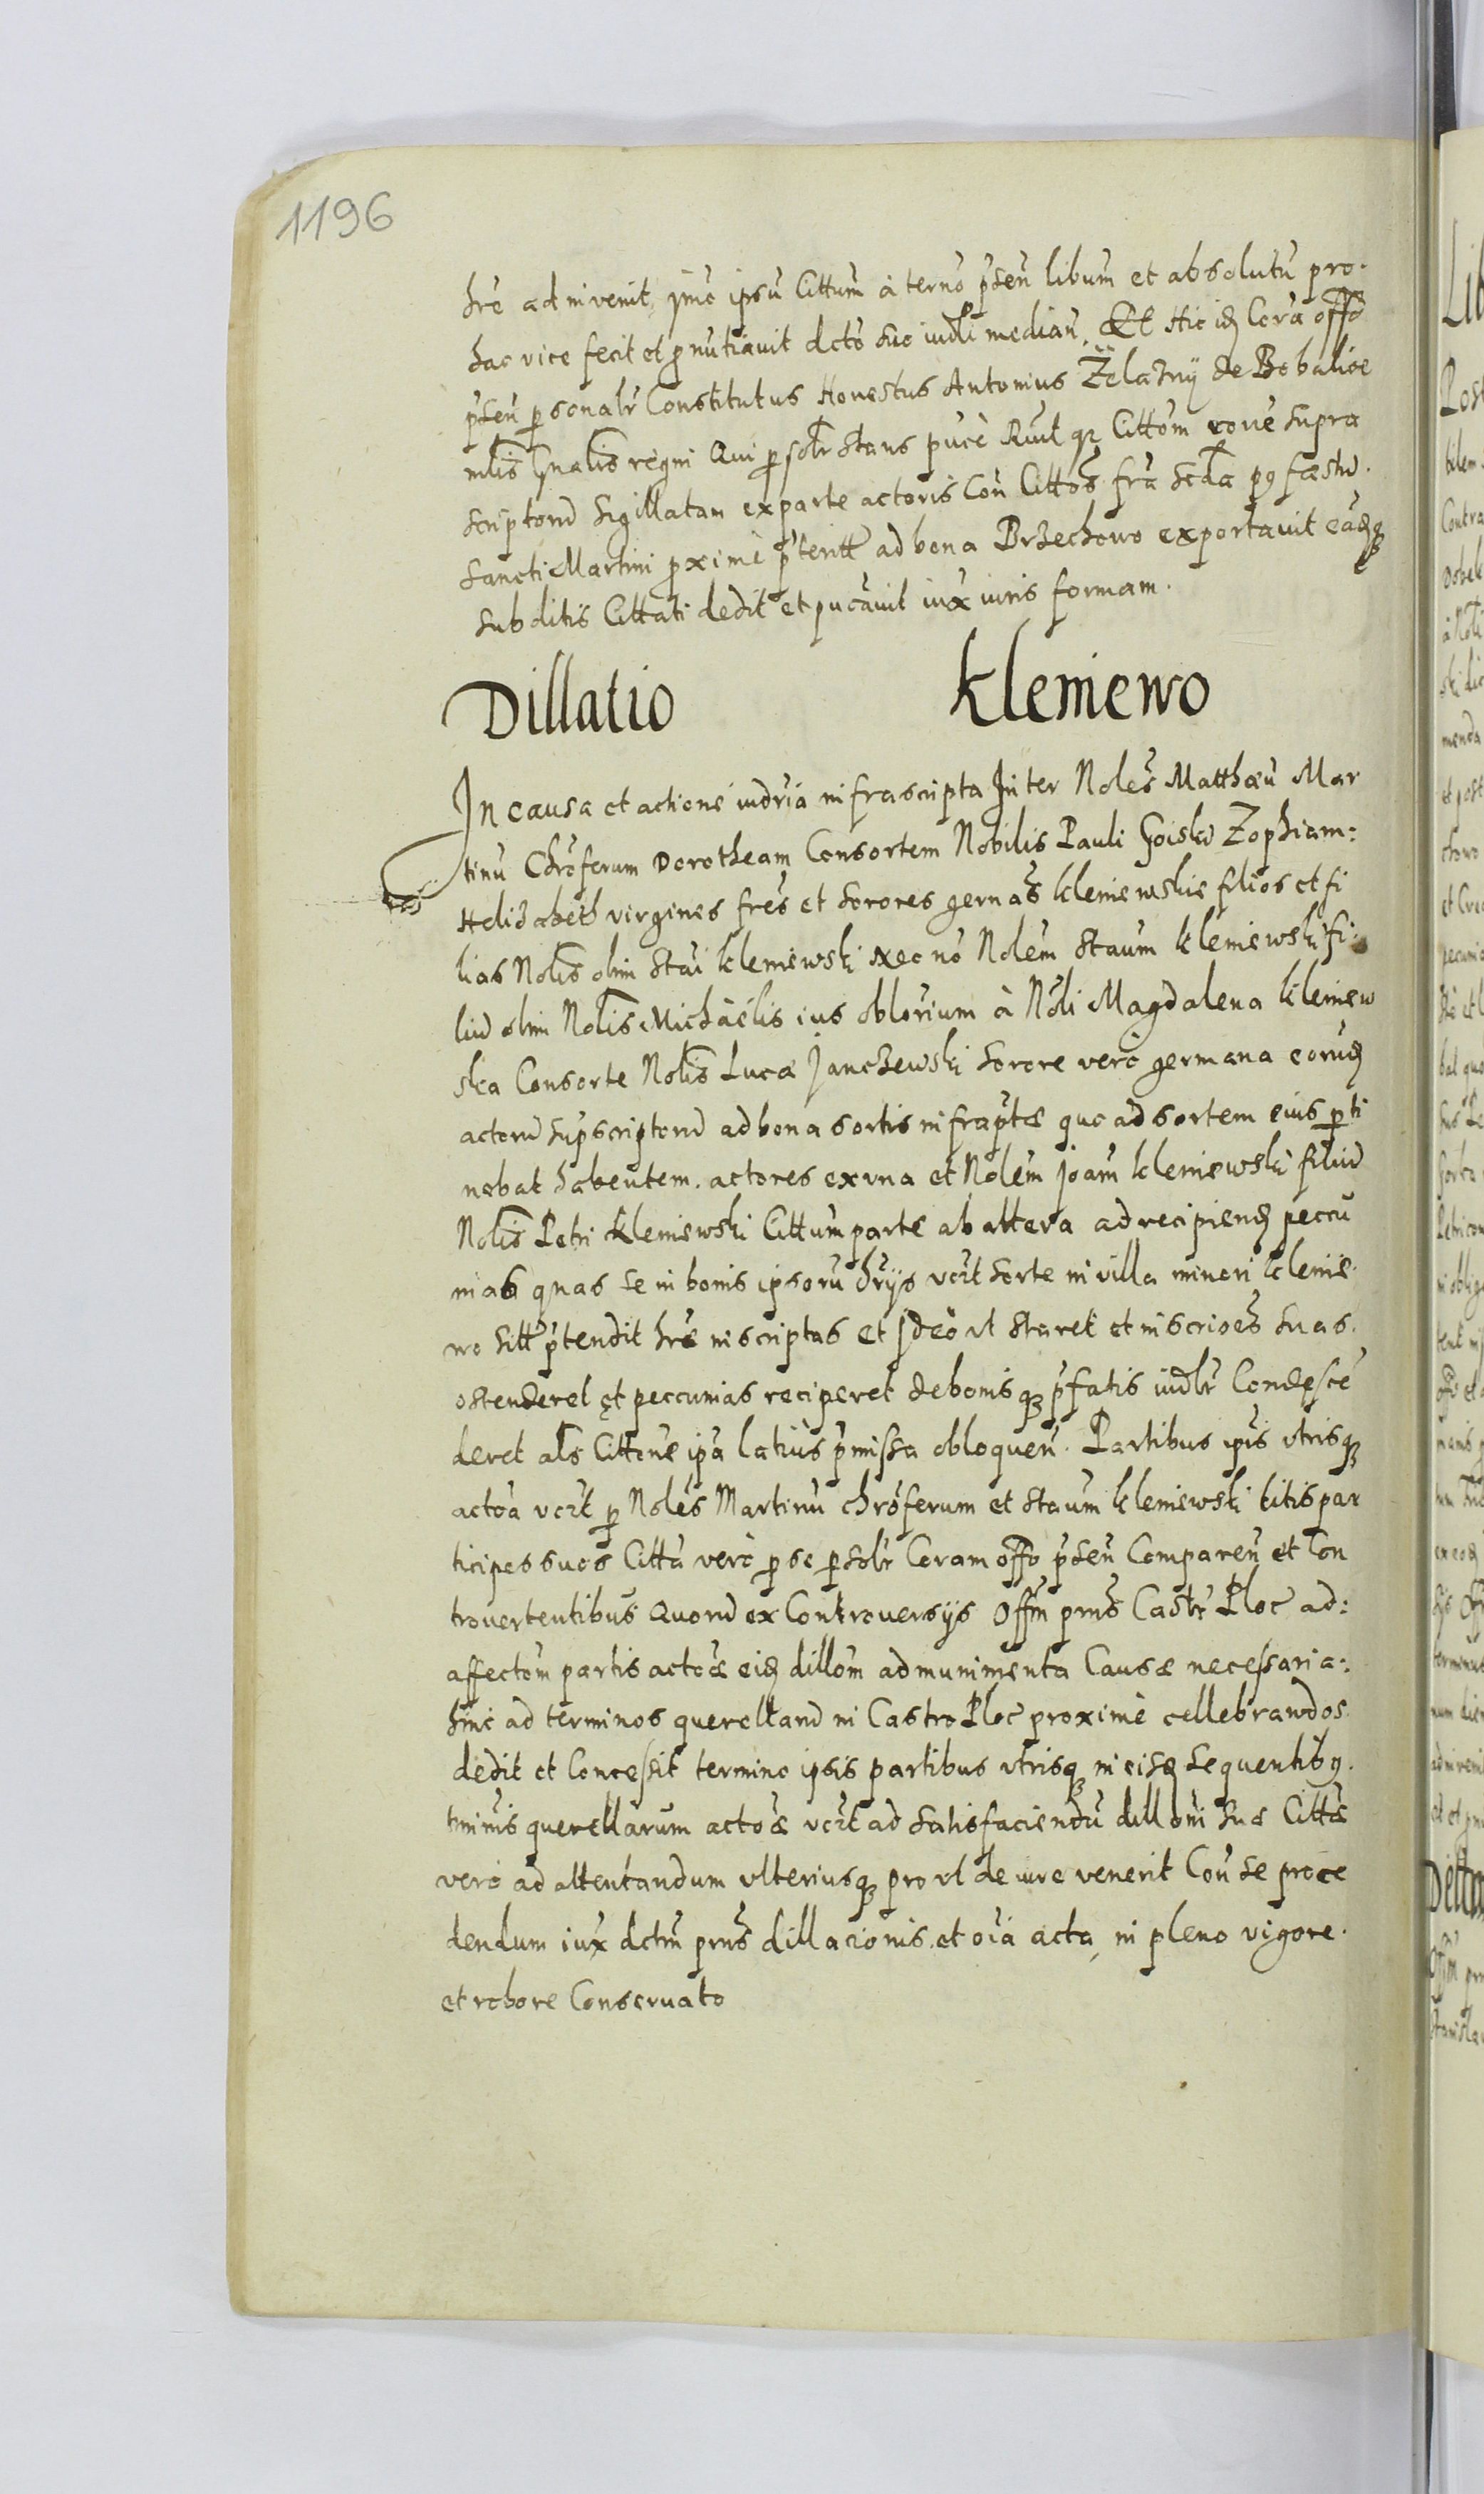 1196
hre adinvenit, ymo ipsu Cittum à terno pseñ libum et absolutu pro
hac vice fecit et pnutiavit dcto suo iudli median. Et Hic idê Corã offo
pseñ psonalr Constitutus Honestus Antonius Żelazny de Bobalice
mlis Gnalis regni Qui psolr stans pucè Rvit qz Cittom cove supra
scriptoru Sigillatam ex parte actoris Con Cittos fra scda pq festu
Sancti Martini pxime pteritt ad bona Brzechowo exportavit eadêqz
subditis Cittati dedit et pucavit iux iuris formam.
Dillatio Kleniewo
In causa et actione iudria infrascripta Inter Noles Matthæu Mar
tinu Chroferum Dorotheam Consortem Nobilis Pauli Goiski Zophiam:
Helizabeth virgines fres et sorores gernas Kleniewskie filios et fi
lias Nolis olim Stai Kleniewski nec no Nolem Staum Kleniewski fi
liu olim Nolis Michäelis ius oblorium à Noli Magdalena Kleniew
ska Consorte Nolis Lucæ Janczewski Sorore verò germana eorudê
actoru supscriptoru ad bona sortis infraptæ quo ad sortem eius pti
nebat habentem. actores ex una et Nolem Joam Kleniewski filiu
Nolis Petri Kleniewski Cittum parte ab altera ad recipiendê peccu
nias quas se in bonis ipsoru hrijs vort sorte in villa minori Klenie
wo sitt ptendit hre inscriptas et Ideo vt staret et inscrioes suas
ostenderet et peccunias reciperet de bonisqz pfatis iudlr Condesce
deret als Cittone ipa latiùs pmissa obloqueñ. Partibus ipis vtrisqz
actoa vort p Noles Martinu Chroferum et Staum Kleniewski litis par
ticipes suos Citta verò p se psolr Coram offo pseñ Compareñ et Con
trovertentibus Quoru ex Controversijs Offm prns Castr Ploc ad:
affectom partis actoæ eidê dillom ad munimenta Causæ necessaria:
hinc ad terminos querellaru in Castro Ploc proximè cellebrandos
dedit et Concessit termino ipsis partibus vtrisqz in eisdê sequentibq
tminis querellarum actoæ vort ad satisfaciendu dilloni suæ Cittæ
verò ad attentandum vlteriusqz pro vt de iure venerit Con se proce
dendum iux dctm prns dillacionis. et oia acta in pleno vigore
et robore Conservato